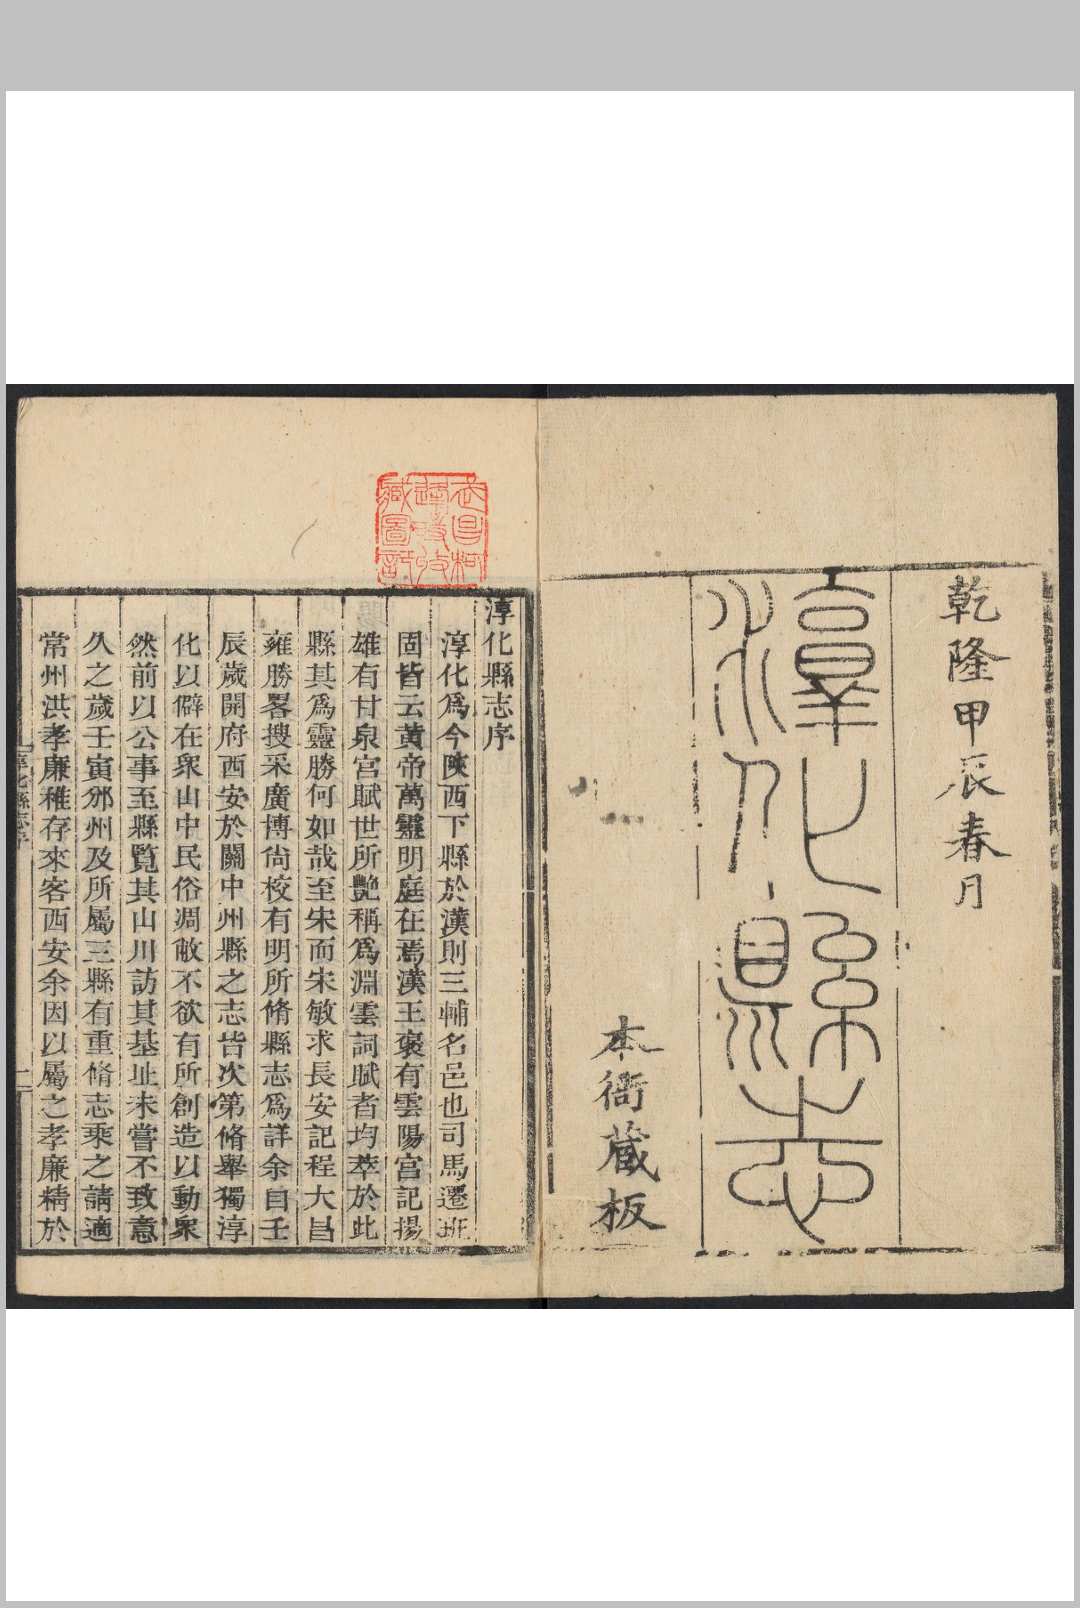 乾隆甲辰春月
淳化縣志
本衙藏板
武昌柯
逢時收
藏圖記
淳化縣志序
淳化爲今陜西下縣於漢則三輔名邑也司馬遷班
固皆云黃帝萬靈明庭在焉漢王褒有雲陽宮記揚
雄有甘泉宮賦世所艷稱爲淵雲詞賦者均萃於此
縣其爲靈勝何如哉至宋而宋敏求長安記程大昌
雍勝畧搜采廣博尙校有明所脩縣志爲詳余自壬
辰歲開府西安於關中州縣之志皆次第脩舉獨淳
化以僻在衆山中民俗凋敝不欲有所創造以動衆
然前以公事至縣覽其山川訪其基址未嘗不致意
久之歲壬寅邠州及所屬三縣有重脩志乘之請適
常州洪孝廉稚存來客西安余因以屬之孝廉精於
淳化縣志序
一